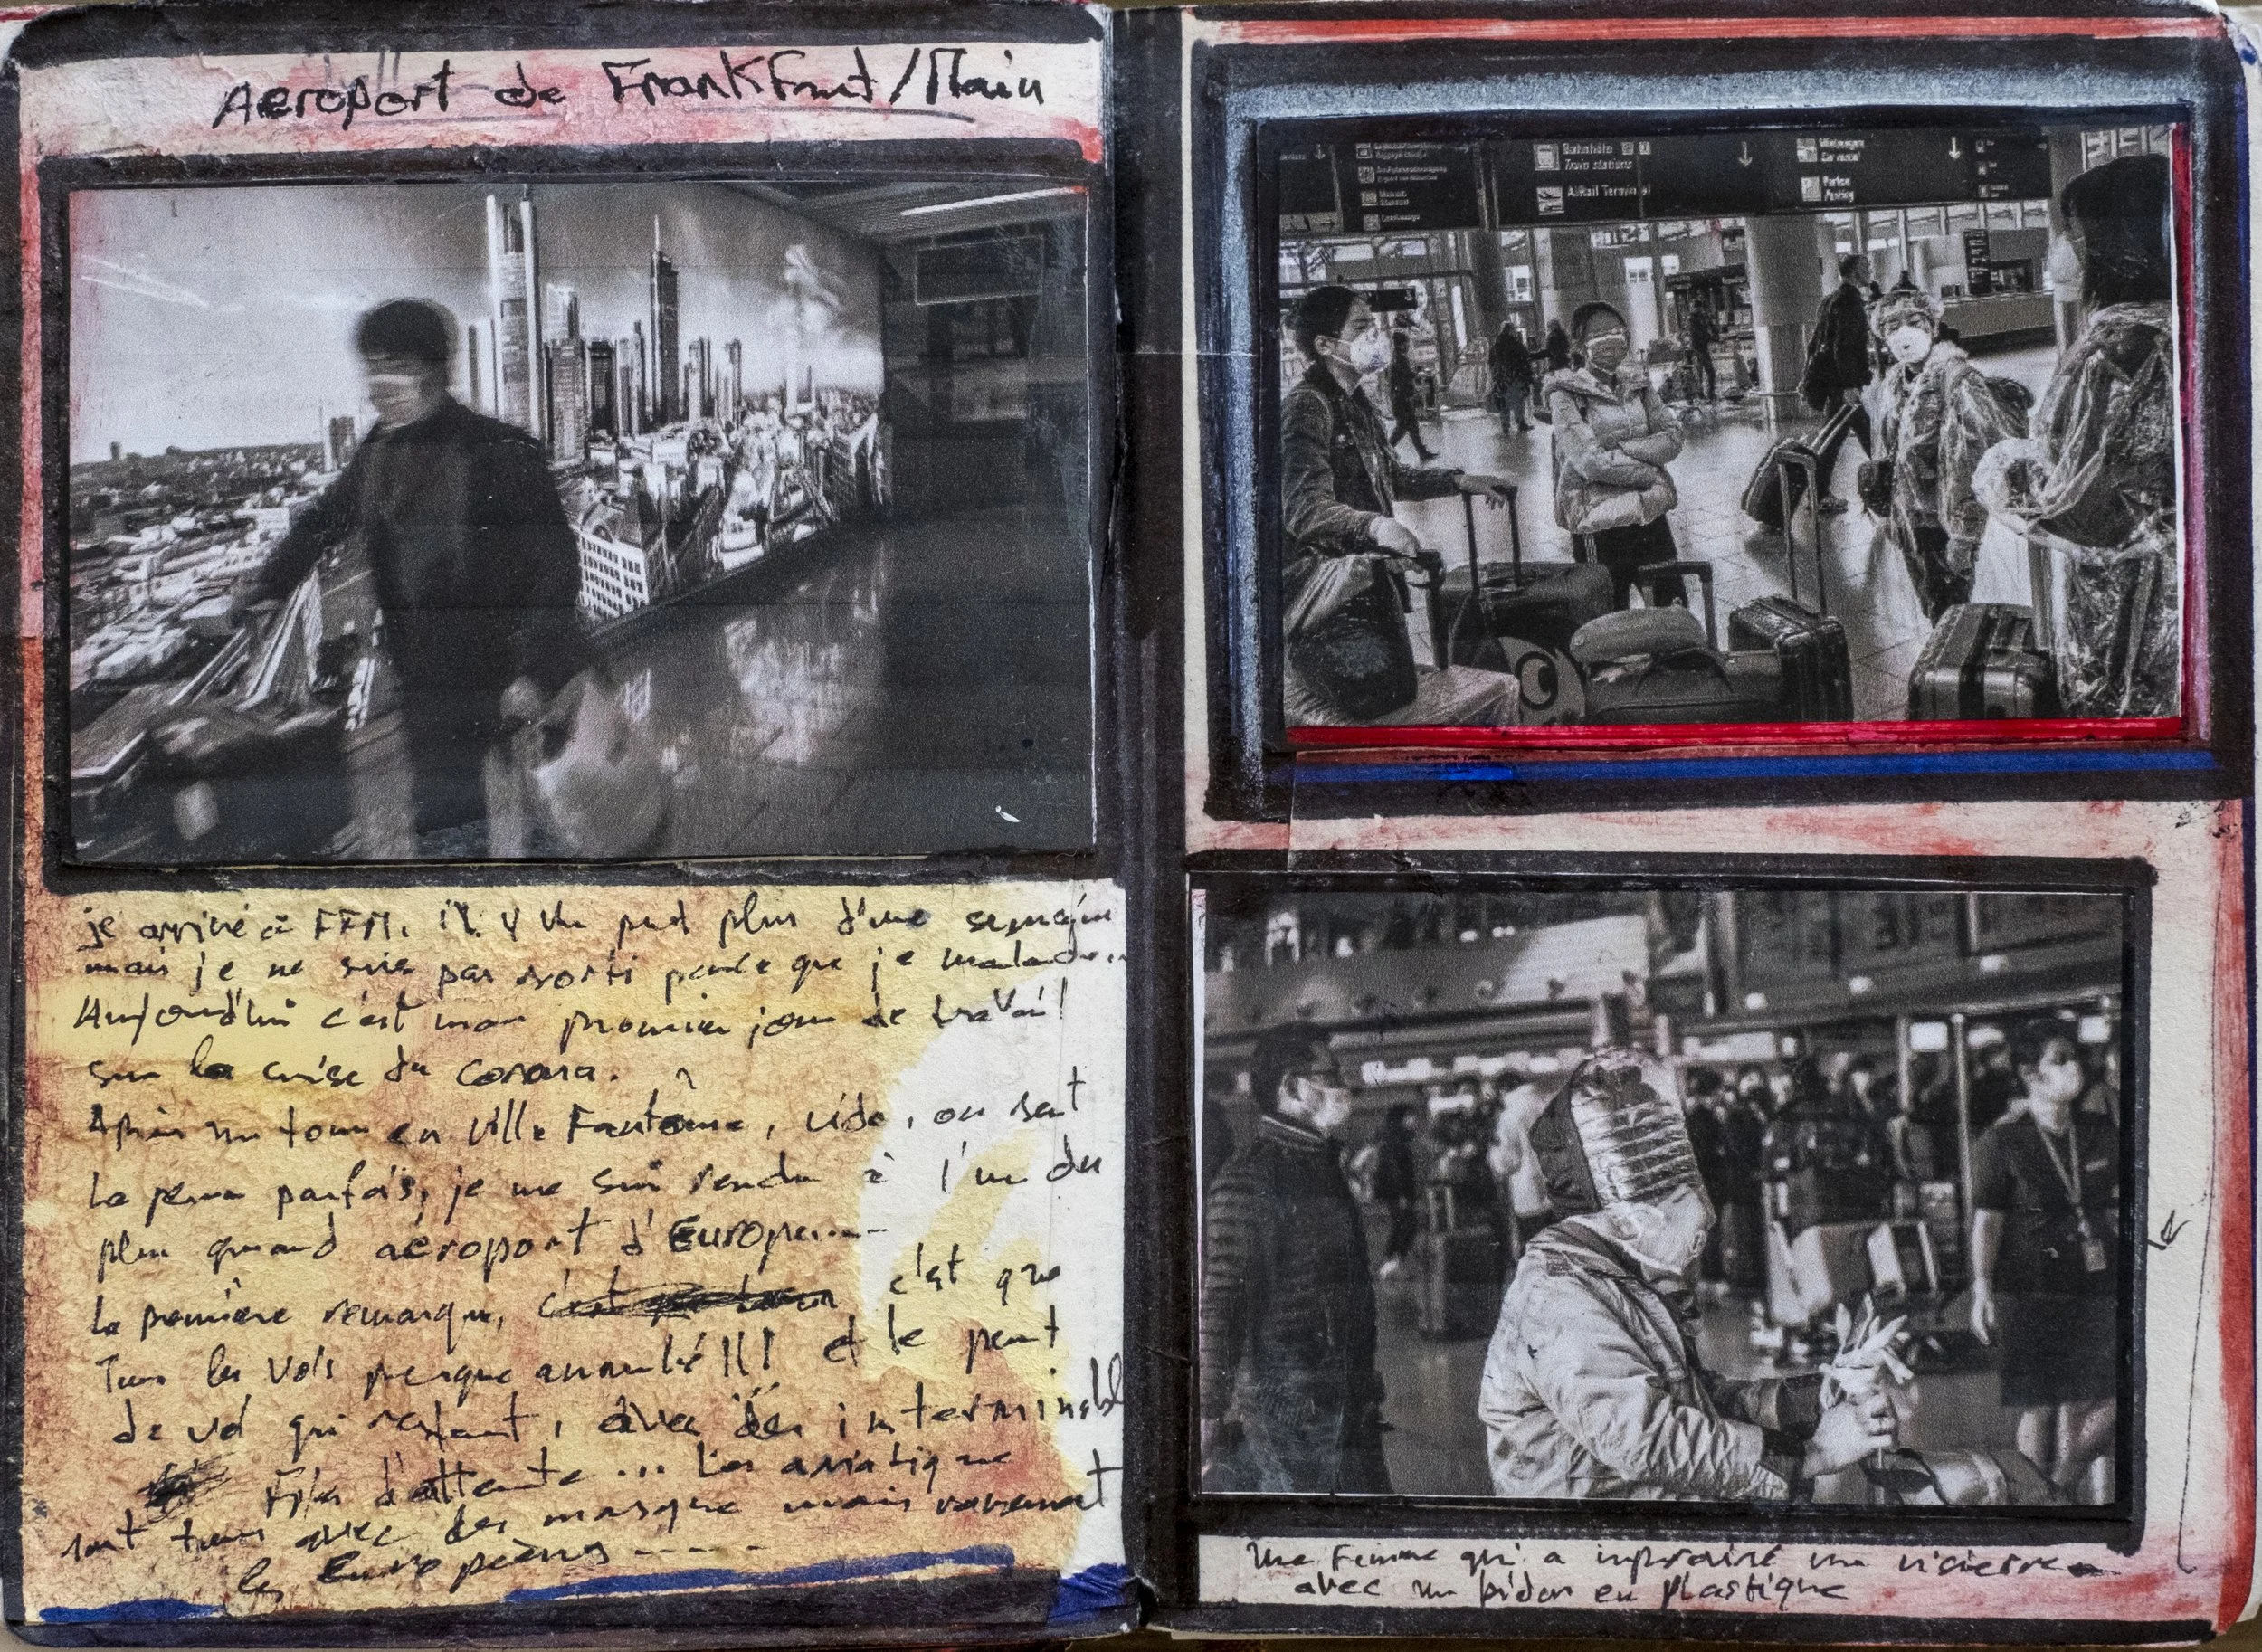 Aeroport de Frankfurt/Main
je arrivé à FFM. il y un peut plus d'une semaine
mais je ne suis pas sorti parce que je malade..
Aujourd'hui c'est mon premier jour de travail
sur la crise du corona.
Après un tour en ville Fantôme, vide, on sent
la peur parfois, je me suis rendu à l'un des
plus quand aéroport d'Europe....
la première remarque, c'est que
Tous les vols presque annulé!!! et le peut
de vol qui restent, avec des interminable
Files d'attente... Les asiatique
sont tous avec des masque mais rarement
les Européens -----
Bahnhöfe
Train stations
AIRail Terminal
Mietwagen
Car rental
Parken
Parking
Une Femme qui a improvisé une visierre
avec un bidon en plastique